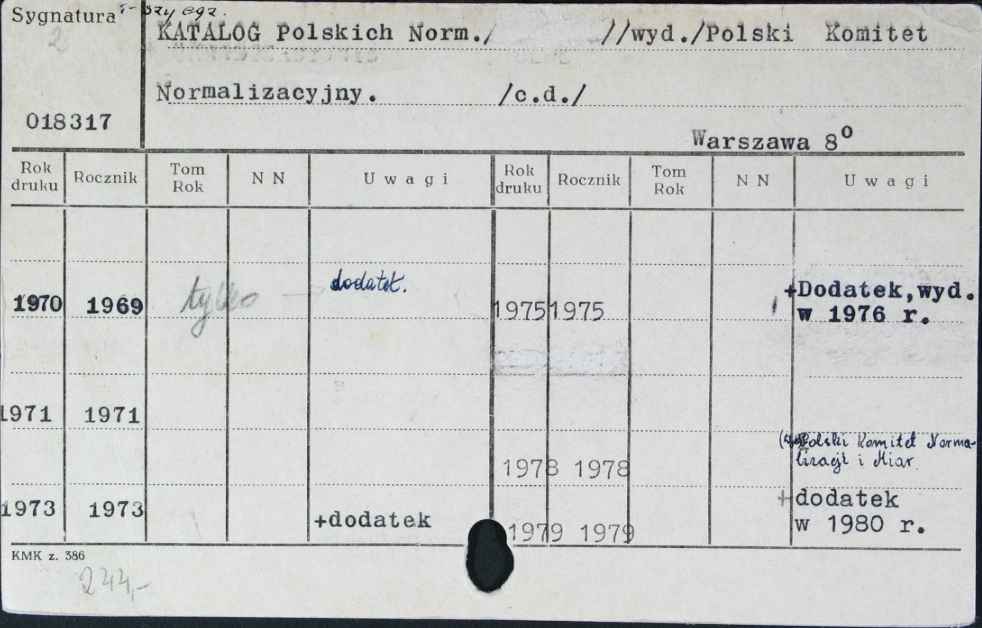 Sygnatura
egz.
2
KATALOG Polskich Norm./ //wyd./Polski Komitet
Normalizacyjny. /c.d./
018317
Warszawa 8º
Rok druku Rocznik Tom Rok N N Uwagi Rok druku Rocznik Tom Rok N N Uwagi
1970 1969 tylko — dodatek.
1975 1975 +Dodatek, wyd.
w 1976 r.
1971 1971
Polski Komitet Norma-
lizacji i Miar.
1978 1978
1973 1973 +dodatek
1979 1979 +dodatek
w 1980 r.
KMK z. 386
244,-